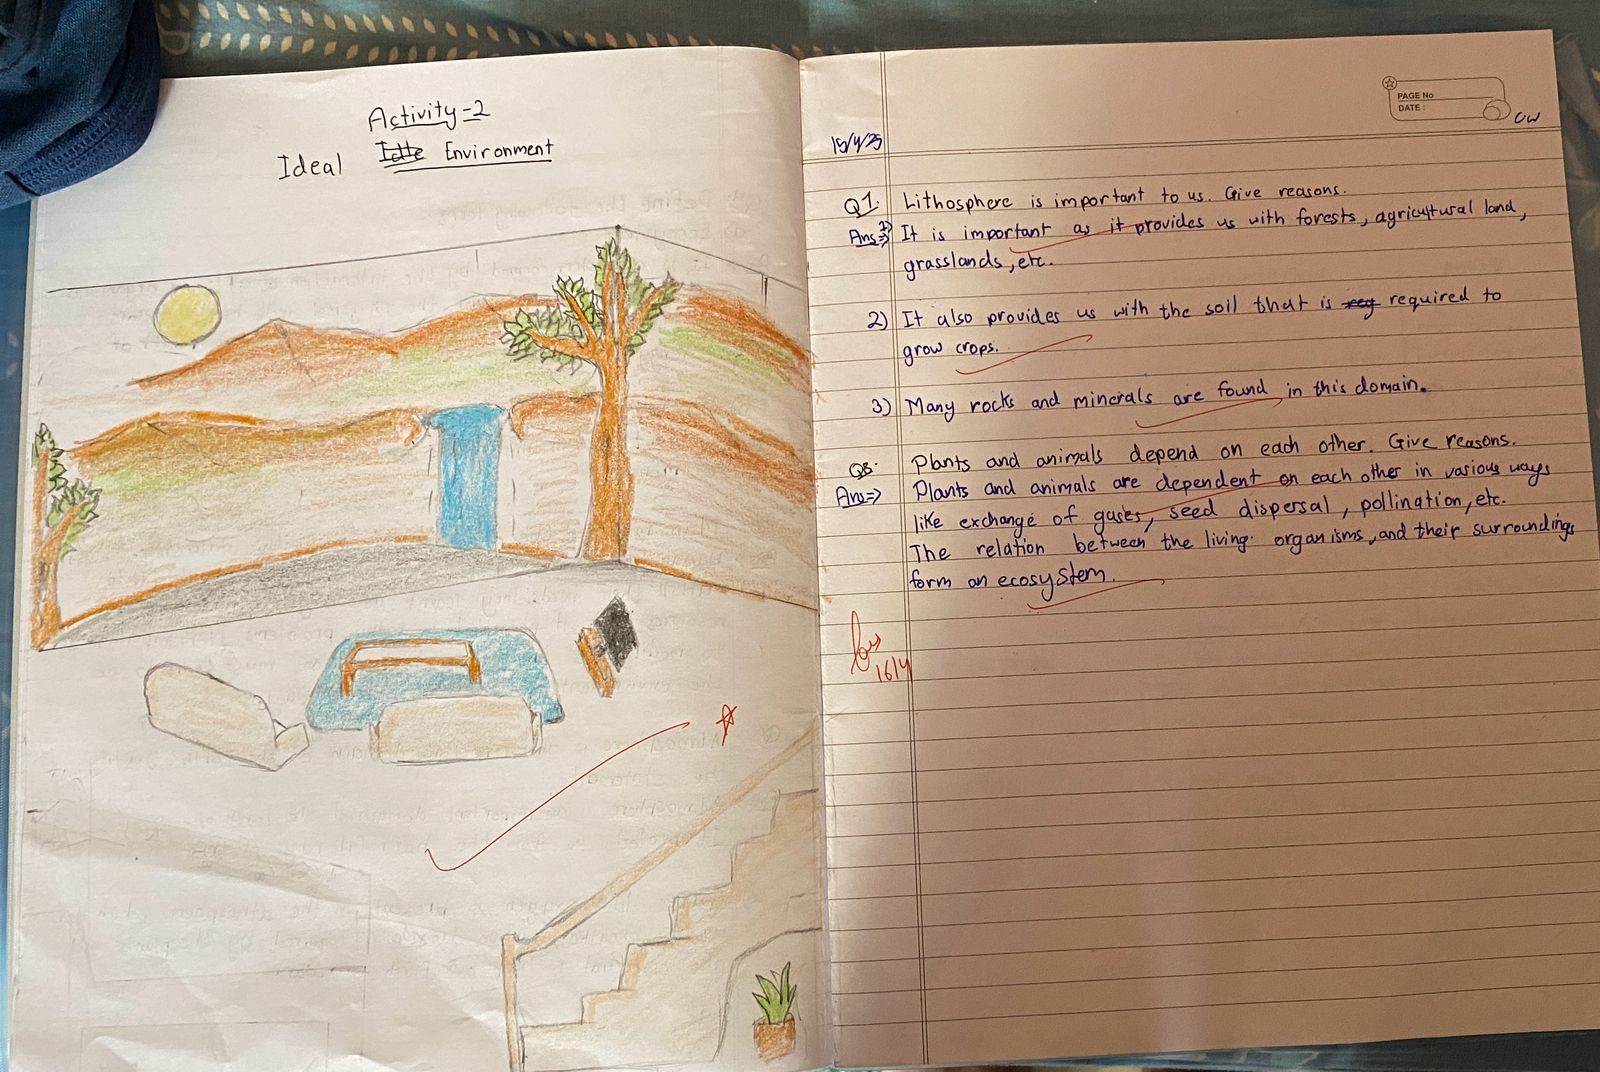 Activity=2
Ideal Idle Environment
PAGE No
DATE :
CW
15/4/25
Q1. Lithosphere is important to us. Give reasons.
Ans=> 1) It is important as it provides us with forests, agricultural land,
grasslands, etc.
2) It also provides us with the soil that is req required to
grow crops.
3) Many rocks and minerals are found in this domain.
Q8. Plants and animals depend on each other. Give reasons.
Ans=> Plants and animals are dependent on each other in various ways
like exchange of gases, seed dispersal, pollination, etc.
The relation between the living organisms, and their surroundings
form an ecosystem.
16/4